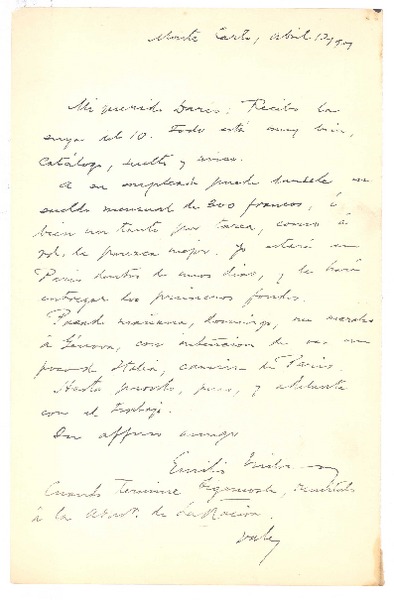 Monte Carlo, abril 12
Mi querido Darío: Recibo la
suya del 10. Todo está muy bien,
catálogo, suelto y aviso.
A su empleado puede dársele un
sueldo mensual de 300 francos, ó
bien un tanto por tarea, como á
Vd. le parezca mejor. Yo estaré en
París dentro de unos días, y le haré
entregar los primeros fondos.
Pasado mañana, domingo, me marcho
á Génova, con intención de ver un
poco de Italia, camino de París.
Hasta pronto, pues, y adelante
con el trabajo.
Su affmo amigo
Emilio
Cuando termine, remítalo
á la Admt. de La Nación.
Vale